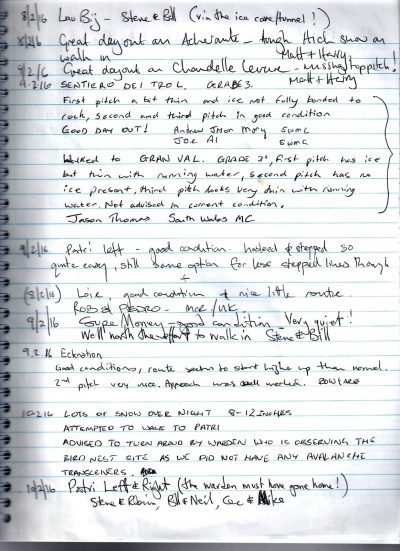 8/2/16 Lau Bij - Steve & Bill (via the ice cave/tunnel!)
8/2/16 Great day out on Acherante - tough thick snow on
walk in Matt + Harry
9/2/16 Great day out on Chandelle Levure - missing top pitch!
Matt + Harry
9.2.16 SENTIERO DEI TROL, GRADE 3.
First pitch a bit thin and ice not fully bonded to
rock, second and third pitch in good condition
GOOD DAY OUT! Andrew Jason Mary SWMC
JOE Al SWMC
Walked to GRAN VAL. GRADE 3+, first pitch has ice
but thin with running water, second pitch has no
ice present, third pitch looks very thin with running
water. Not advised in current condition.
Jason Thomas South Wales MC
9/2/16 Patri left - good condition. Hooked & stepped so
quite easy, still some option for less stepped lines though
+
(8/2/16) Loie, good condition & nice little route
ROB & PEDRO - MCR/UK
9/2/16 Sure Money - good condition - Very quiet!
Well worth the effort to walk in Steve & Bill
9.2.16 Ecknation
Good conditions, route seems to start higher up than normal.
2nd pitch very nice. Approach was well marked.
10.2.16 LOTS OF SNOW OVER NIGHT 8-12 INCHES
ATTEMPTED TO WALK TO PATRI
ADVISED TO TURN AROUND BY WARDEN WHO IS OBSERVING THE
BIRD NEST SITE AS WE DID NOT HAVE ANY AVALANCHE
TRANSCEIVERS.
10/2/16 Patri Left & Right (the warden must have gone home!)
Steve & Robin, Bill & Neil, Cec & Mike